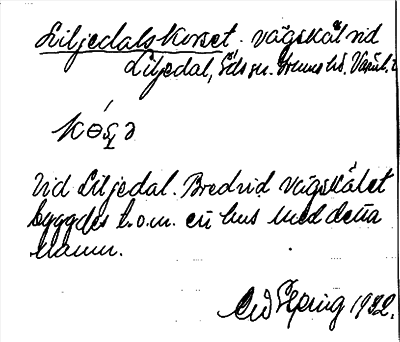 Liljedalskorset. vägskäl vid
Liljedal, Eds sn. Grums hd. Värml.
Vid Liljedal. Bredvid vägskälet
byggdes t.o.m. ett hus med detta
namn.
1932.